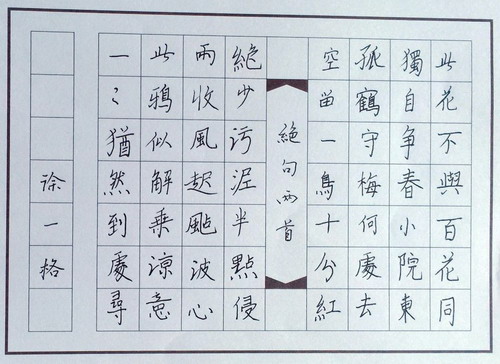 此花不與百花同
獨自争春小院東
孤鶴守梅何處去
空畄一鳥十分紅
絶句兩首
絶少污泥半點侵
雨收風起颭波心
此鴉似解乗涼意
一〻猶然到處尋
涂一格